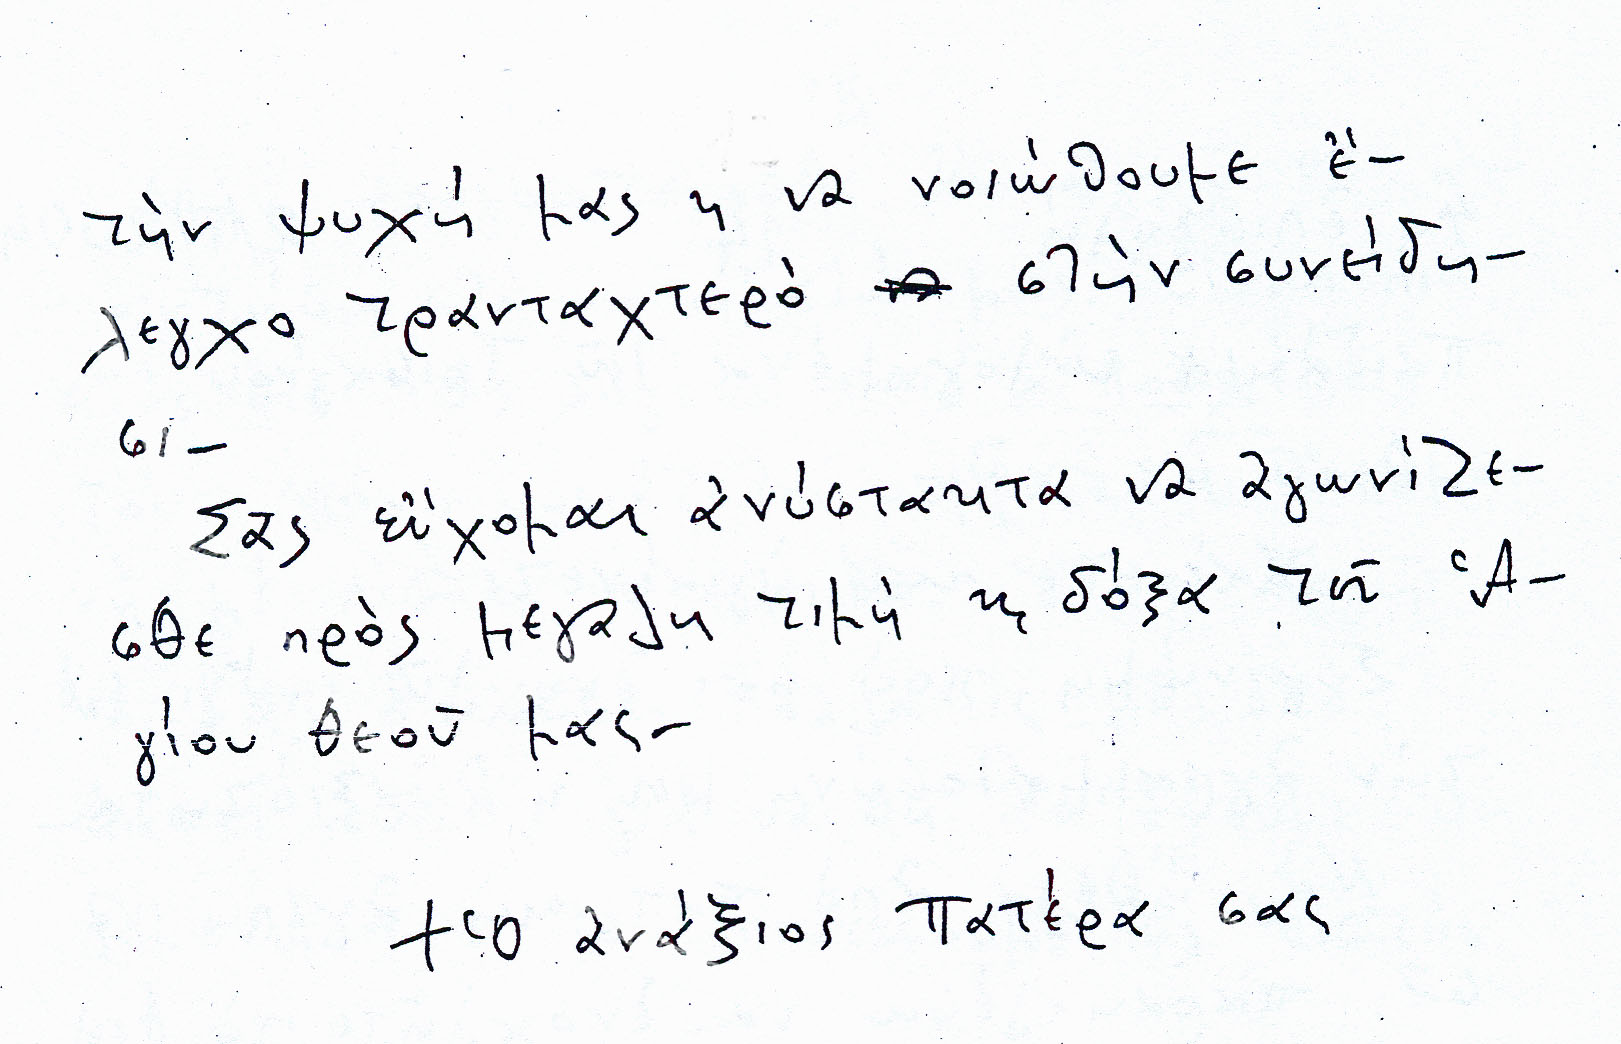 τὴν ψυχή μας ϗ νὰ νοιώθουμε ἔ-
λεγχο τρανταχτερὸ στὴν συνείδη-
σι-
Σᾶς εὔχομαι ἀνύστακτα νὰ ἀγωνίζε-
σθε πρὸς μεγάλη τιμὴ ϗ δόξα τοῦ Ἁ-
γίου Θεοῦ μας-
+ Ὁ ἀνάξιος Πατέρα σας